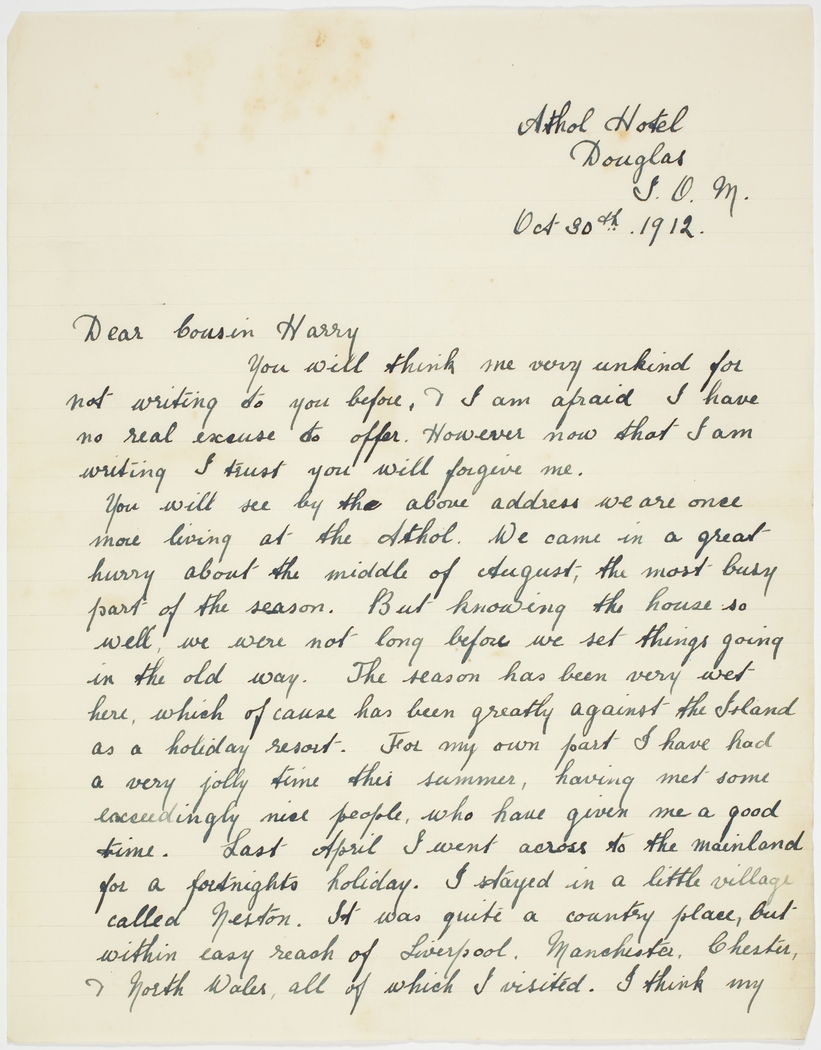 Athol Hotel
Douglas
I. O. M.
Oct 30th. 1912.
Dear Cousin Harry
You will think me very unkind for
not writing to you before, & I am afraid I have
no real excuse to offer. However now that I am
writing I trust you will forgive me.
You will see by the above address we are once
more living at the Athol. We came in a great
hurry about the middle of August, the most busy
part of the season. But knowing the house so
well, we were not long before we set things going
in the old way. The season has been very wet
here, which of cause has been greatly against the Island
as a holiday resort. For my own part I have had
a very jolly time this summer, having met some
exceedingly nice people, who have given me a good
time. Last April I went across to the mainland
for a fortnights holiday. I stayed in a little village
called Neston. It was quite a country place, but
within easy reach of Liverpool. Manchester. Chester,
& North Wales, all of which I visited. I think my